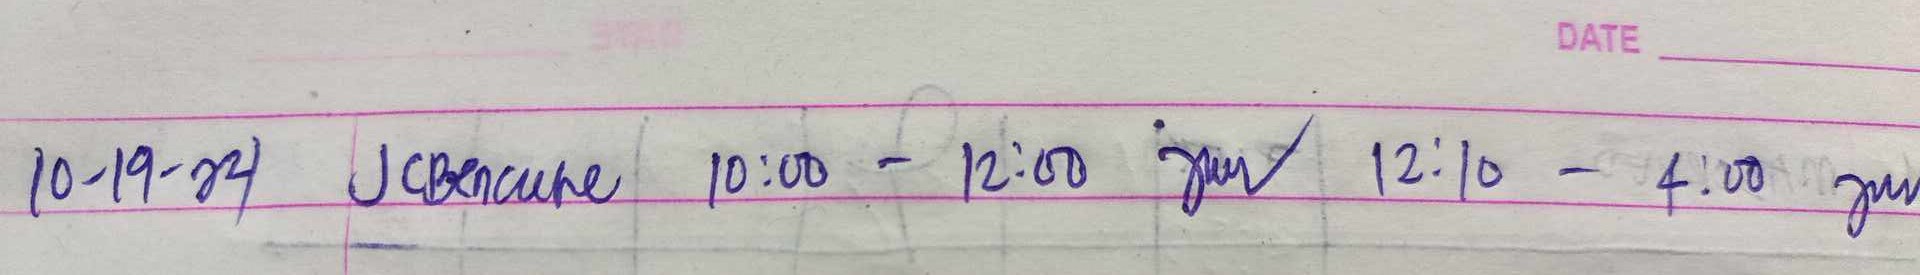 DATE
10-19-24 JCBencure 10:00 - 12:00 12:10 - 4:00